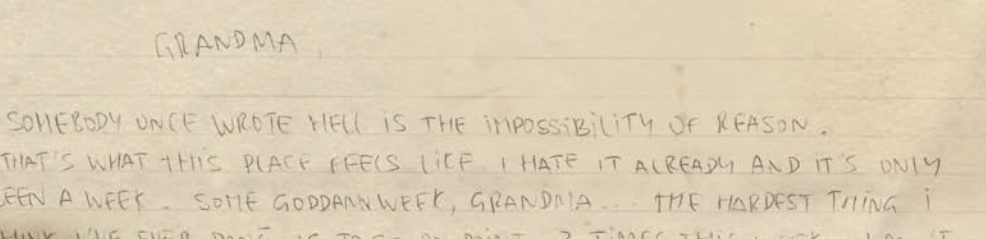 GRANDMA
SOMEBODY ONCE WROTE HELL IS THE IMPOSSIBILITY OF REASON.
THAT'S WHAT THIS PLACE FEELS LIKE I HATE IT ALREADY AND IT'S ONLY
EEN A WEEK. SOME GODDAMN WEEK, GRANDMA... THE HARDEST THING I